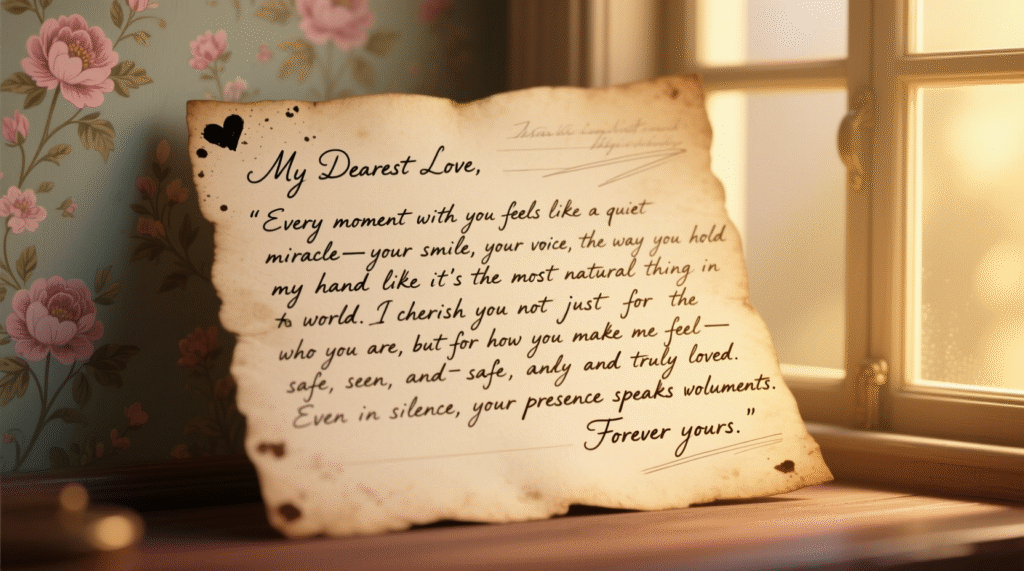 My Dearest Love,
“Every moment with you feels like a quiet
miracle—your smile, your voice, the way you hold
my hand like it's the most natural thing in
to world. I cherish you not just for the
who you are, but for how you make me feel—
safe, seen, and–safe, anly and truly loved.
Even in silence, your presence speaks woluments.
Forever yours.”